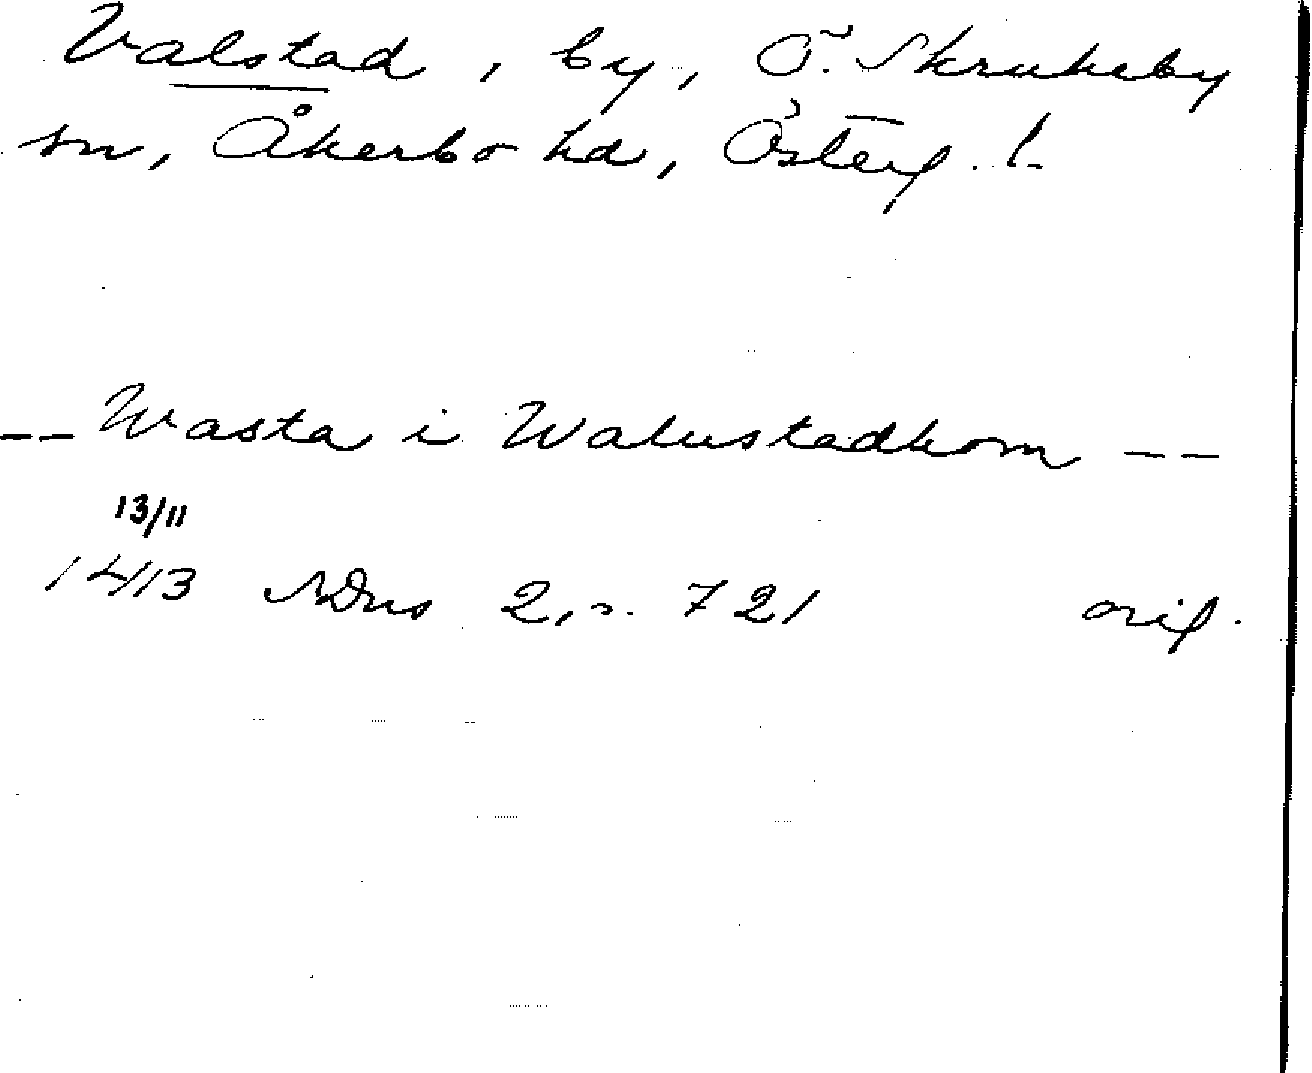 Valstad, by, Ö. Skrukeby
sn, Åkerbo hd, Österg. l.
-- Wasta i Walustadhom --
13/11
1413 SDns 2, s. 721 orig.